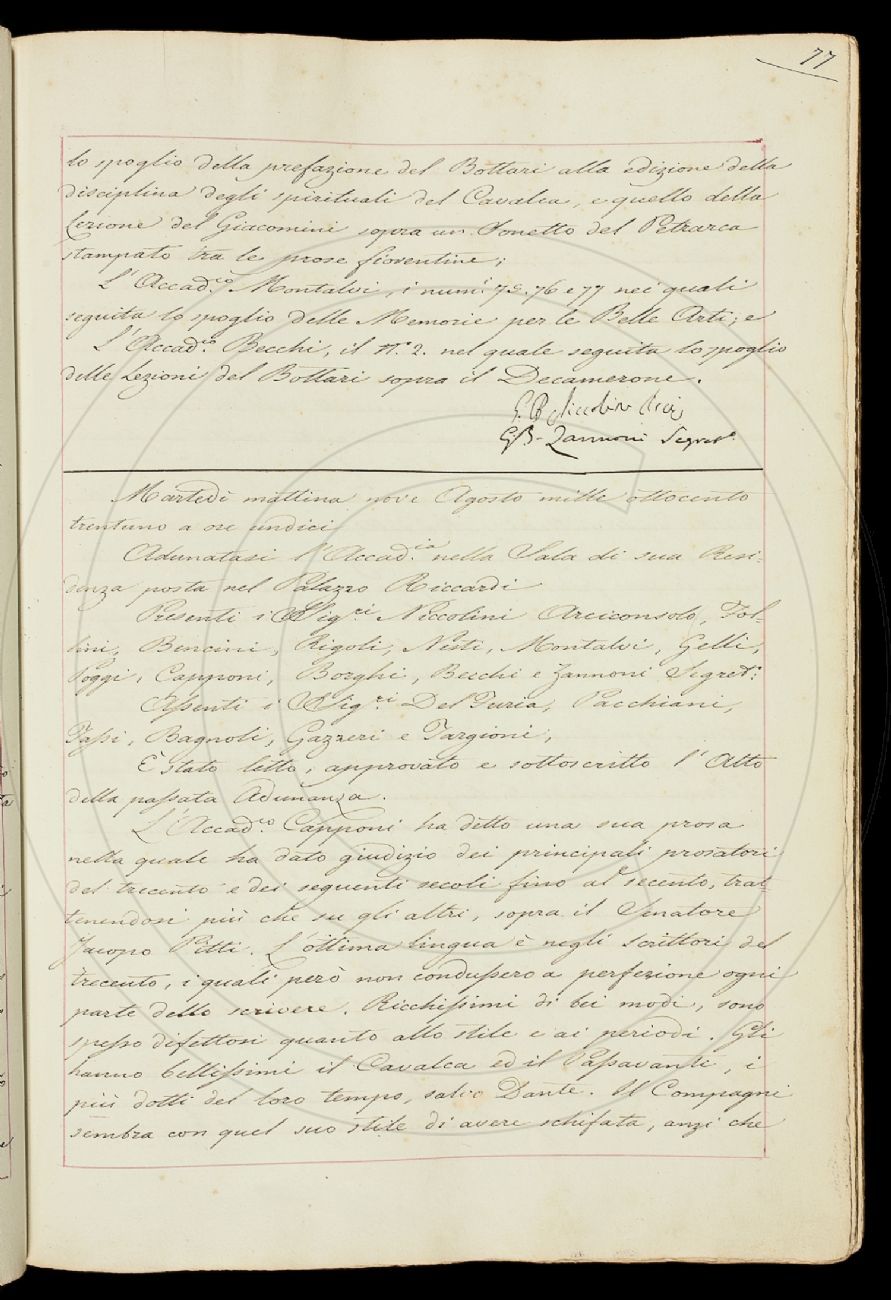 77
lo spoglio della prefazione del Bottari alla edizione della
disciplina degli spirituali del Cavalca, e quello della
Lezione del Giacomini sopra un Sonetto del Petrarca
stampato tra le prose fiorentine;
L'Accad.co Montalvi, i num.i 75. 76 e 77 nei quali
seguita lo spoglio delle Memorie per le Belle Arti; e
L'Accad.co Becchi, il N.o 2. nel quale seguita lo spoglio
delle Lezioni del Bottari sopra il Decamerone.
G. B. Niccolini
G. B. Zannoni Segret.o
Martedì mattina nove Agosto mille ottocento
trentuno a ore undici
Adunatasi l'Accad.ia nella Sala di sua Resi-
denza posta nel Palazzo Riccardi
Presenti i SSig.ri Niccolini Arciconsolo, Fol-
lini, Bencini, Rigoli, Nesti, Montalvi, Gelli,
Poggi, Capponi, Borghi, Becchi e Zannoni Segret.o
Assenti i SSig.ri Del Furia, Pacchiani,
Tassi, Bagnoli, Gazzeri e Targioni,
È stato letto, approvato e sottoscritto l'Atto
della passata Adunanza.
L'Accad.co Capponi ha detto una sua prosa
nella quale ha dato giudizio dei principali prosatori
del trecento e dei seguenti secoli fino al secento, trat-
tenendosi più che su gli altri, sopra il Senatore
Jacopo Pitti. L'ottima lingua è negli scrittori del
trecento, i quali però non condussero a perfezione ogni
parte dello scrivere. Ricchissimi di bei modi, sono
spesso difettosi quanto allo stile e ai periodi. Gli
hanno bellissimi il Cavalca ed il Passavanti, i
più dotti del loro tempo, salvo Dante. Il Compagni
sembra con quel suo stile di avere schifata, anzi che